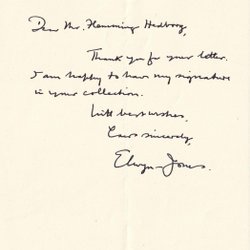 Dear Mr. Flemming Hedborg,
Thank you for your letter.
I am happy to have my signature
in your collection.
With best wishes,
Yours sincerely,
Elwyn-Jones.